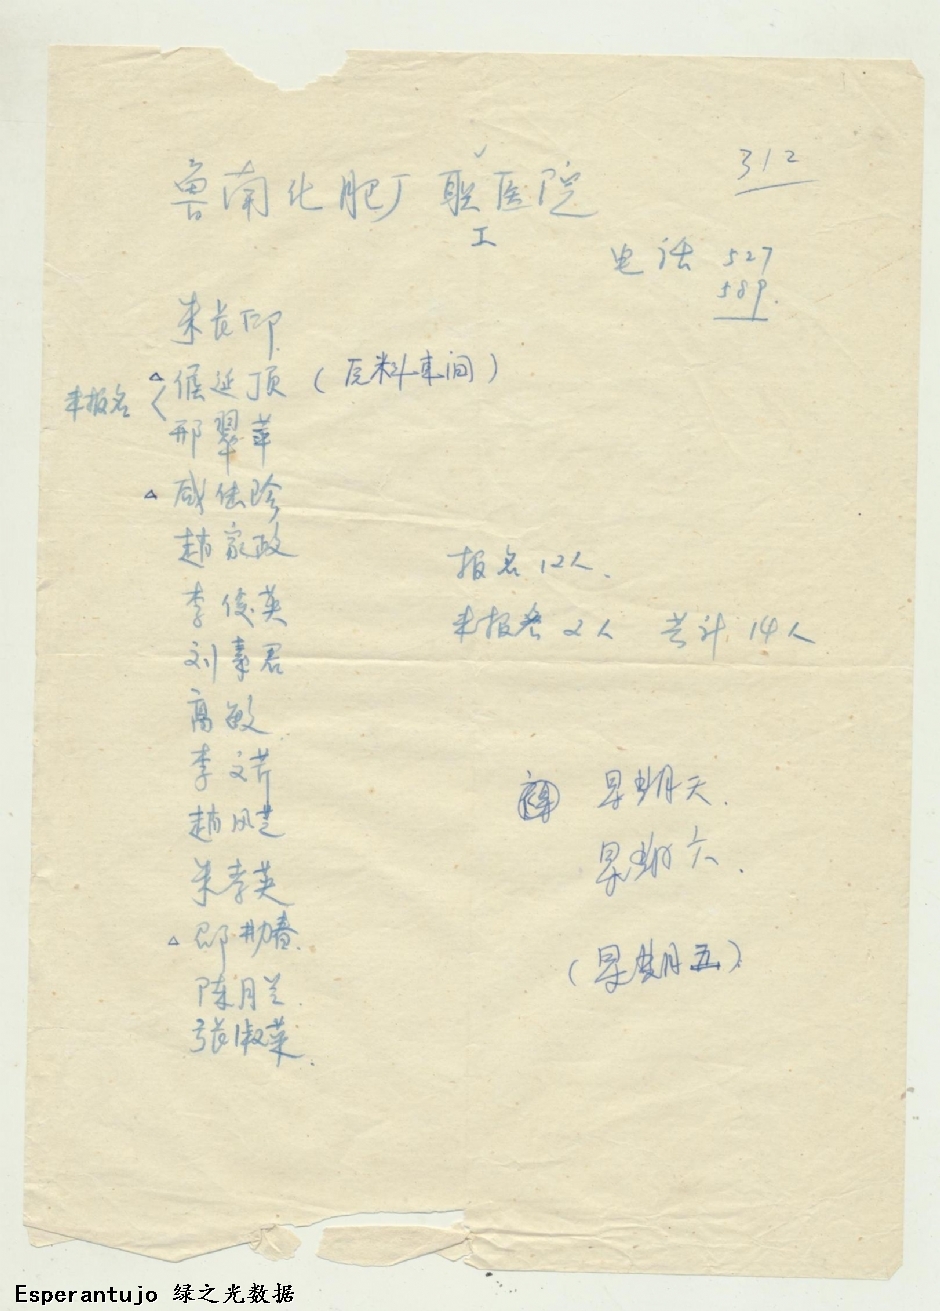 312
鲁南化肥厂职工医院
电话 527
589.
朱长印
未报名
侯延顶 (原料车间)
邢翠苹
戚佳珍
赵家政
报名12人.
李俊英
未报名2人 共计14人
刘素君
高敏
李文芹
星期天.
赵凤芝
星期六.
朱孝英
邵勘春.
(星期五)
陈月兰
张淑菜.
Esperantujo 绿之光数据